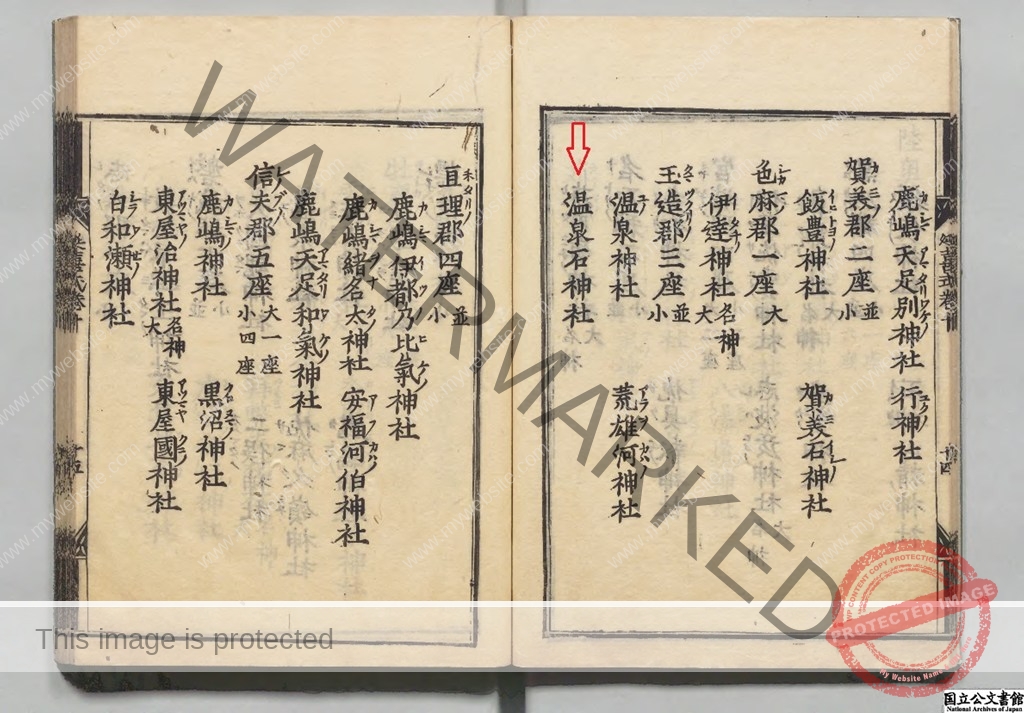 鹿嶋天足別神社 行神社
賀美郡二座 並小
飯豊神社 賀美石神社
色麻郡一座 大
伊達神社 名神大
玉造郡三座 並小
温泉神社 荒雄河神社
温泉石神社
亘理郡四座 並小
鹿嶋伊都乃比氣神社
鹿嶋緒名太神社 安福河伯神社
鹿嶋天足和氣神社
信夫郡五座 大一座 小四座
鹿嶋神社 黒沼神社
東屋沼神社 名神大 東屋國神社
白和瀬神社
延喜式巻十
WATERMARKED
This image is protected
PROTECTED IMAGE
IMAGE COPY PROTECTED
My Website Name
www.mywebsite.com
国立公文書館
National Archives of Japan